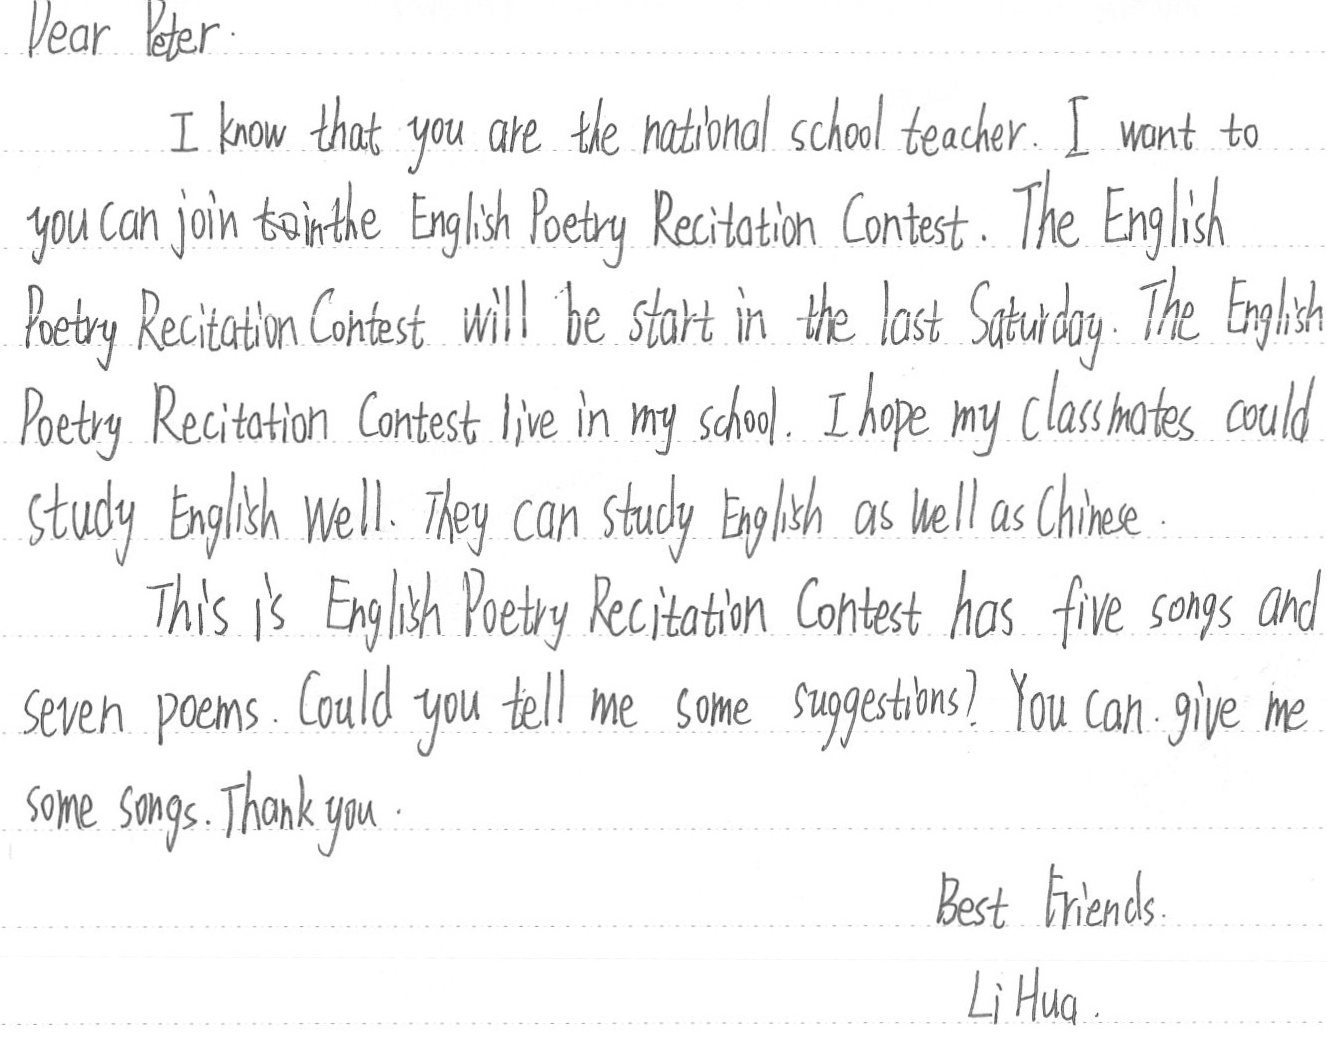 Dear Peter.
I know that you are the national school teacher. I want to
you can join in the English Poetry Recitation Contest. The English
Poetry Recitation Contest will be start in the last Saturday. The English
Poetry Recitation Contest live in my school. I hope my classmates could
study English well. They can study English as well as Chinese.
This is English Poetry Recitation Contest has five songs and
seven poems. Could you tell me some suggestions? You can. give me
some songs. Thank you.
Best Friends.
Li Hua.